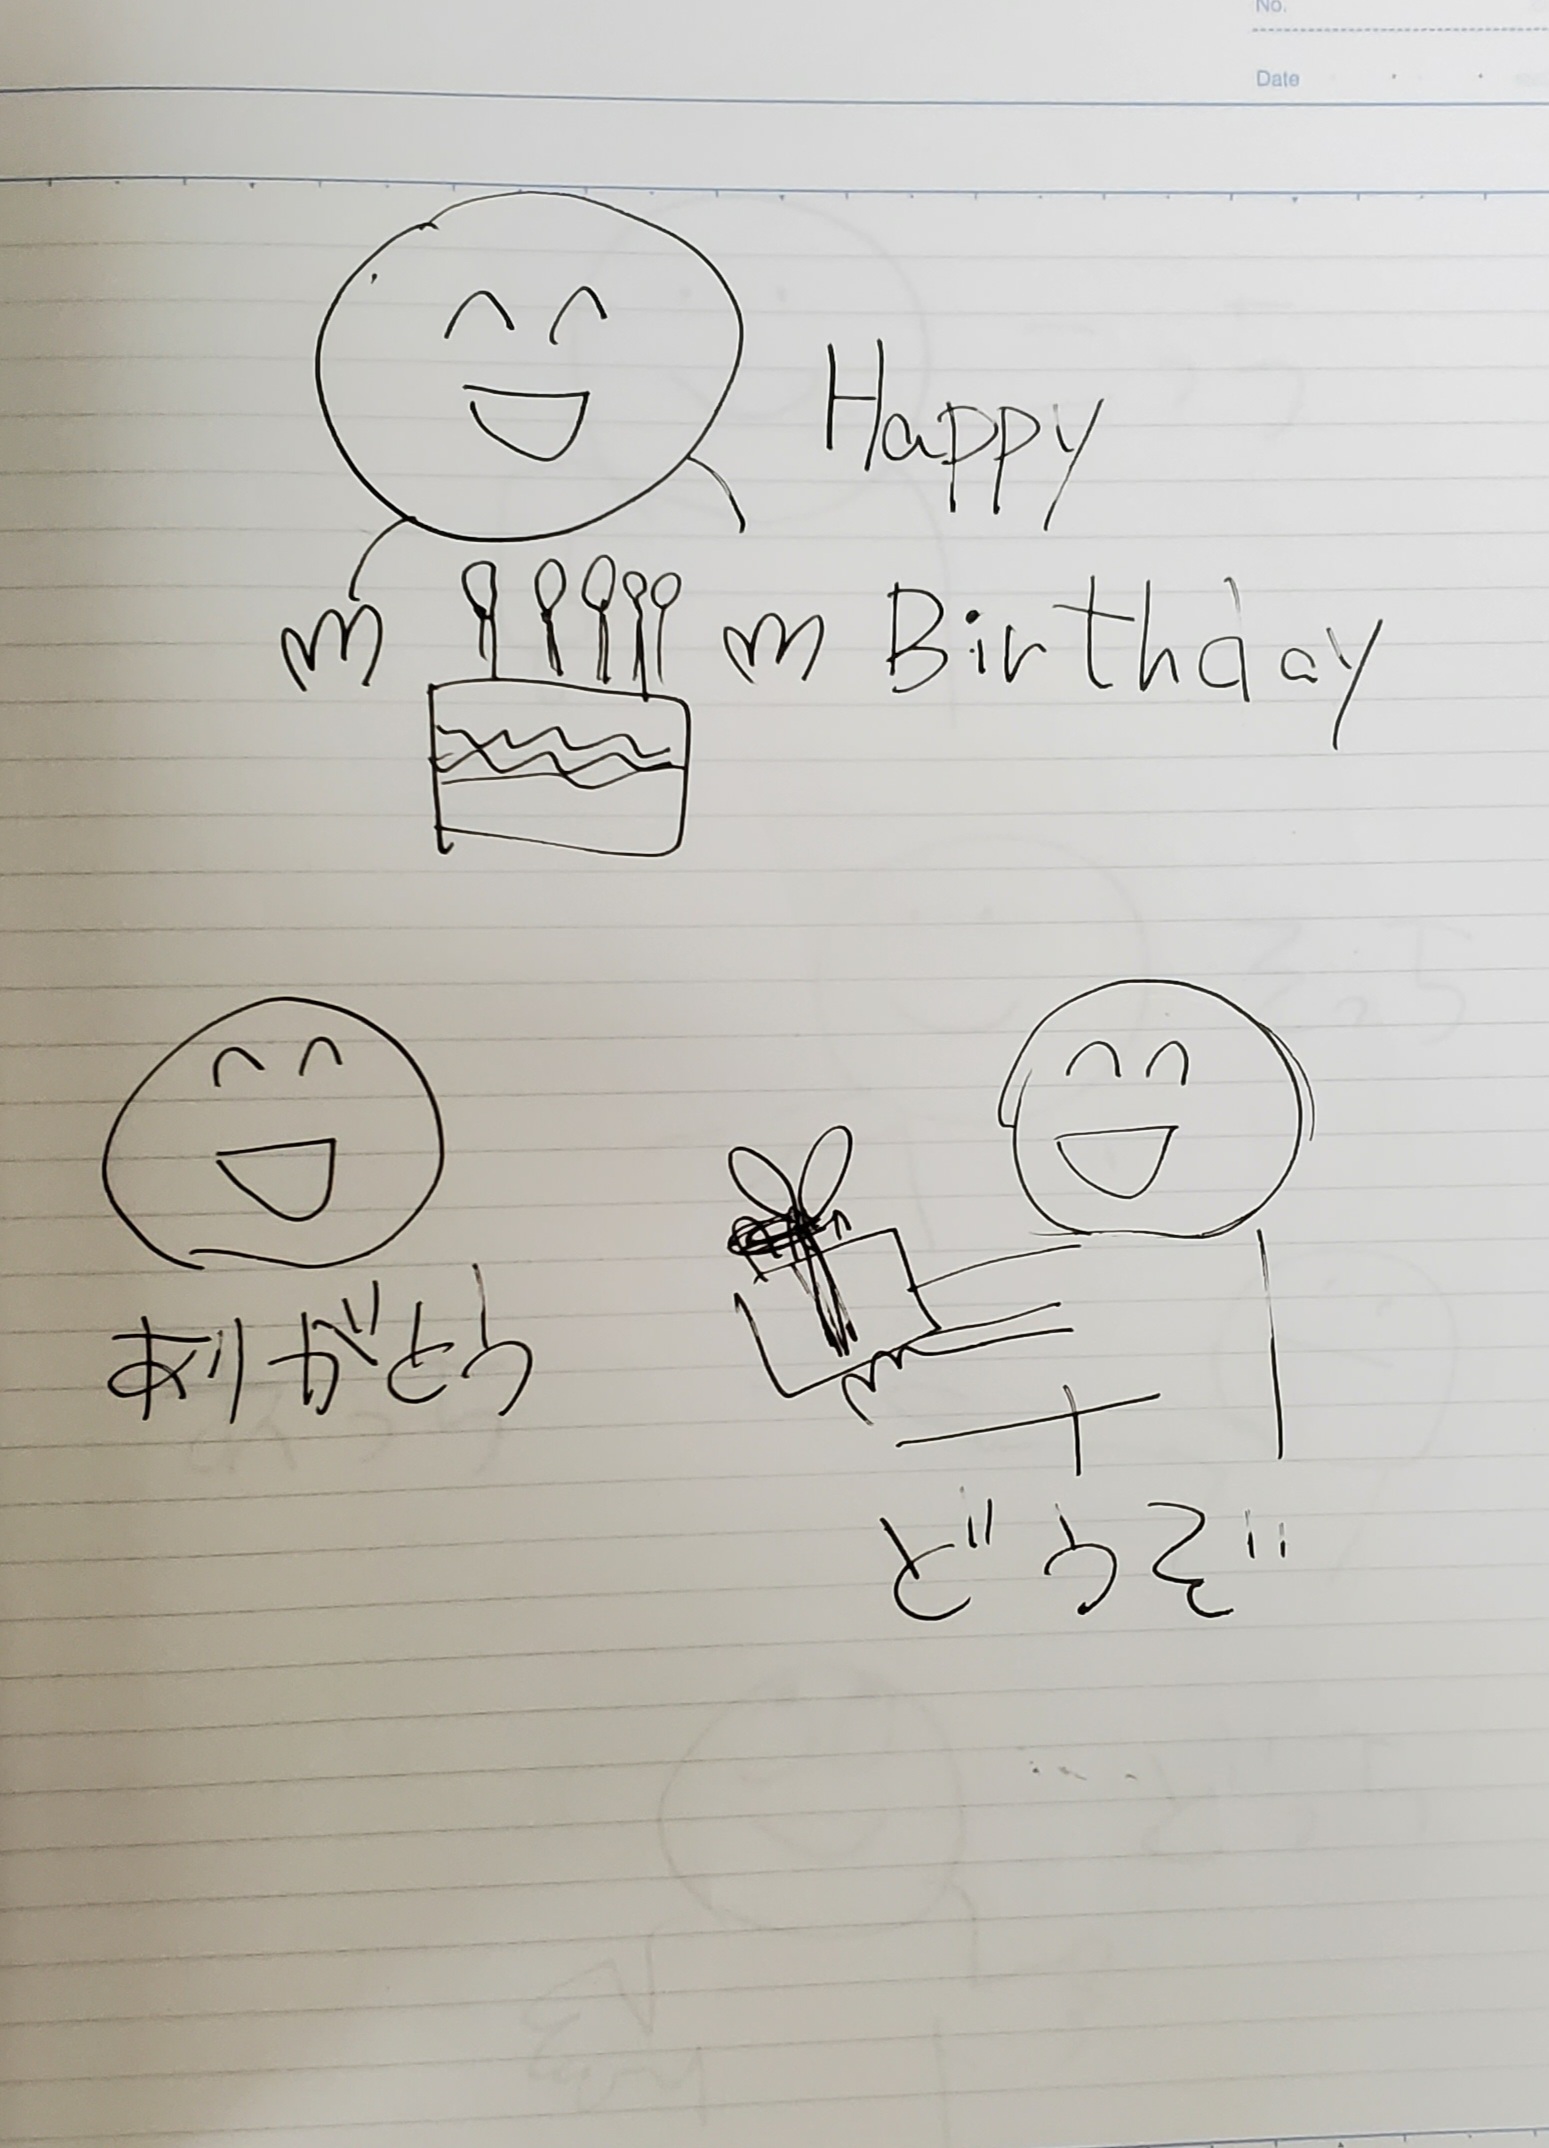 No.
Date
Happy
Birthday
ありがとう
どうぞ